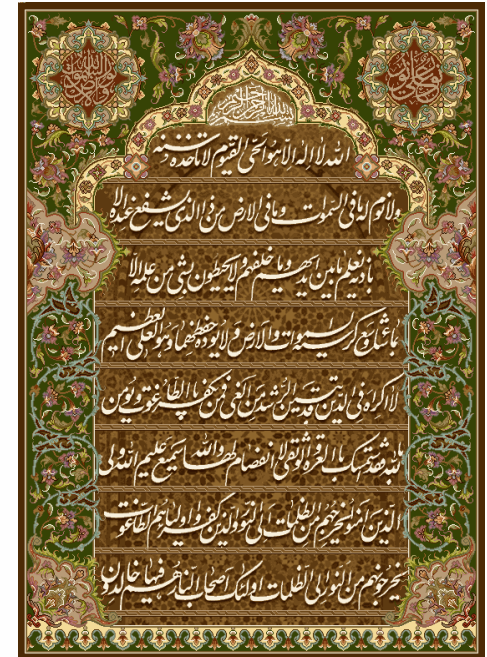 بسم الله الرحمن الرحیم
الله لا اله الا هو الحی القیوم لا تاخذه سنه
ولا نوم له ما فی السموت وما فی الارض من ذا الذی یشفع عنده الا
باذنه یعلم ما بین ایدیهم وما خلفهم ولا یحیطون بشی من علمه الا
بما شاء وسع کرسیه السموات والارض ولا یوده حفظهما وهو العلی العظیم
لا اکراه فی الدین قد تبین الرشد من الغی فمن یکفر با الطاغوت ویومن
بالله فقد استمسک با العروة الوثقی لا انفصام لها والله سمیع علیم الله ولی
الذین امنو یخرجهم من الظلمات الی النور والذین کفرو اولیاهم الطاغوت
یخرجونهم من النور الی الظلمات اولئک اصحاب النار هم فیها خالدون